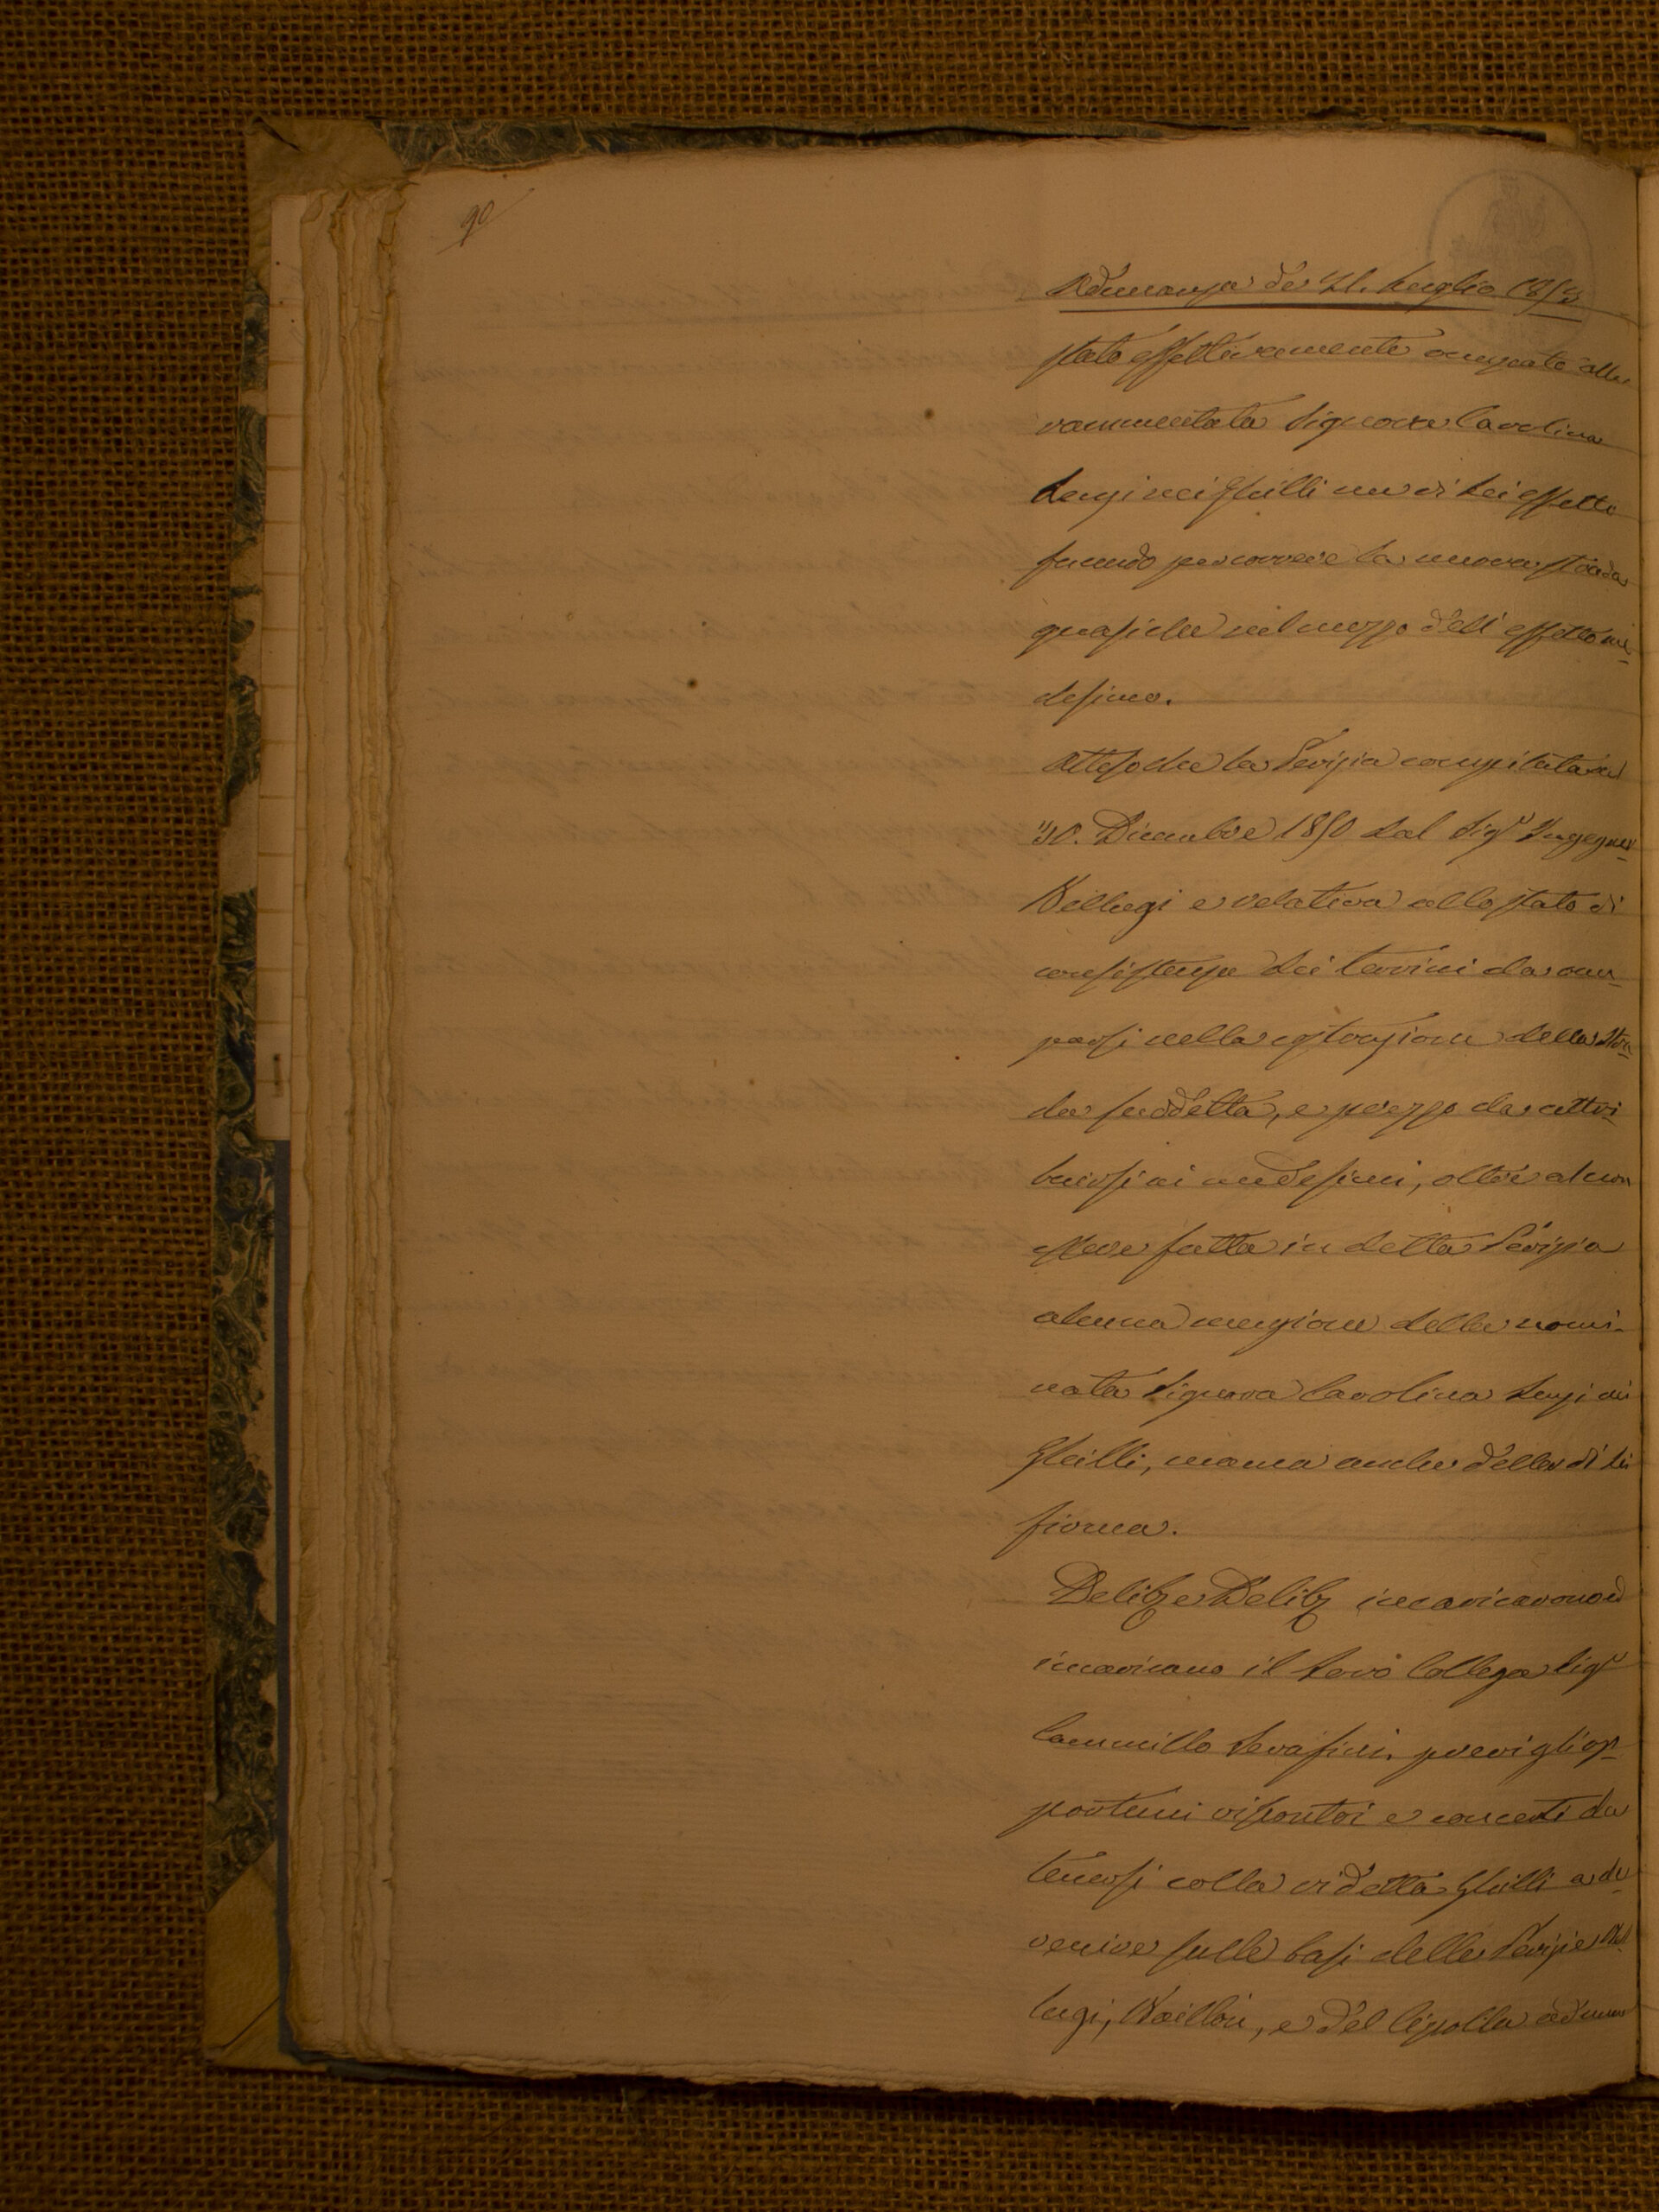 90
Adunanza de 21. Luglio 1853
stato effettivamente occupato alla
rammentata Signora Carolina
Lenzi nei Ghilli un di Lei effetto
facendo percorrere la nuova strada
quasiche nel mezzo dell' effetto me¬
desimo.
Attesoche la Perizia compilata nel
30. Dicembre 1850 dal Sigr Ingegner
Bellugi e relativa allo stato di
consistenza dei terreni da occu¬
parsi nella costruzione della Stra¬
da suddetta, e prezzo da attri¬
buirsi ai medesimi, oltre al non
essere fatta in detta Perizia
alcuna menzione della nomi¬
nata Signora Carolina Lenzi nei
Ghilli, manca anche della di Lei
firma.
Delibe Delib incaricarono ed
incaricano il Loro Collega Sigr
Cammillo Serafini. previ gli op¬
portuni riscontri e concerti da
tenersi colla ridetta Ghilli a de¬
venire sulle basi delle Perizie Bel¬
lugi, e del Cipolla ad una